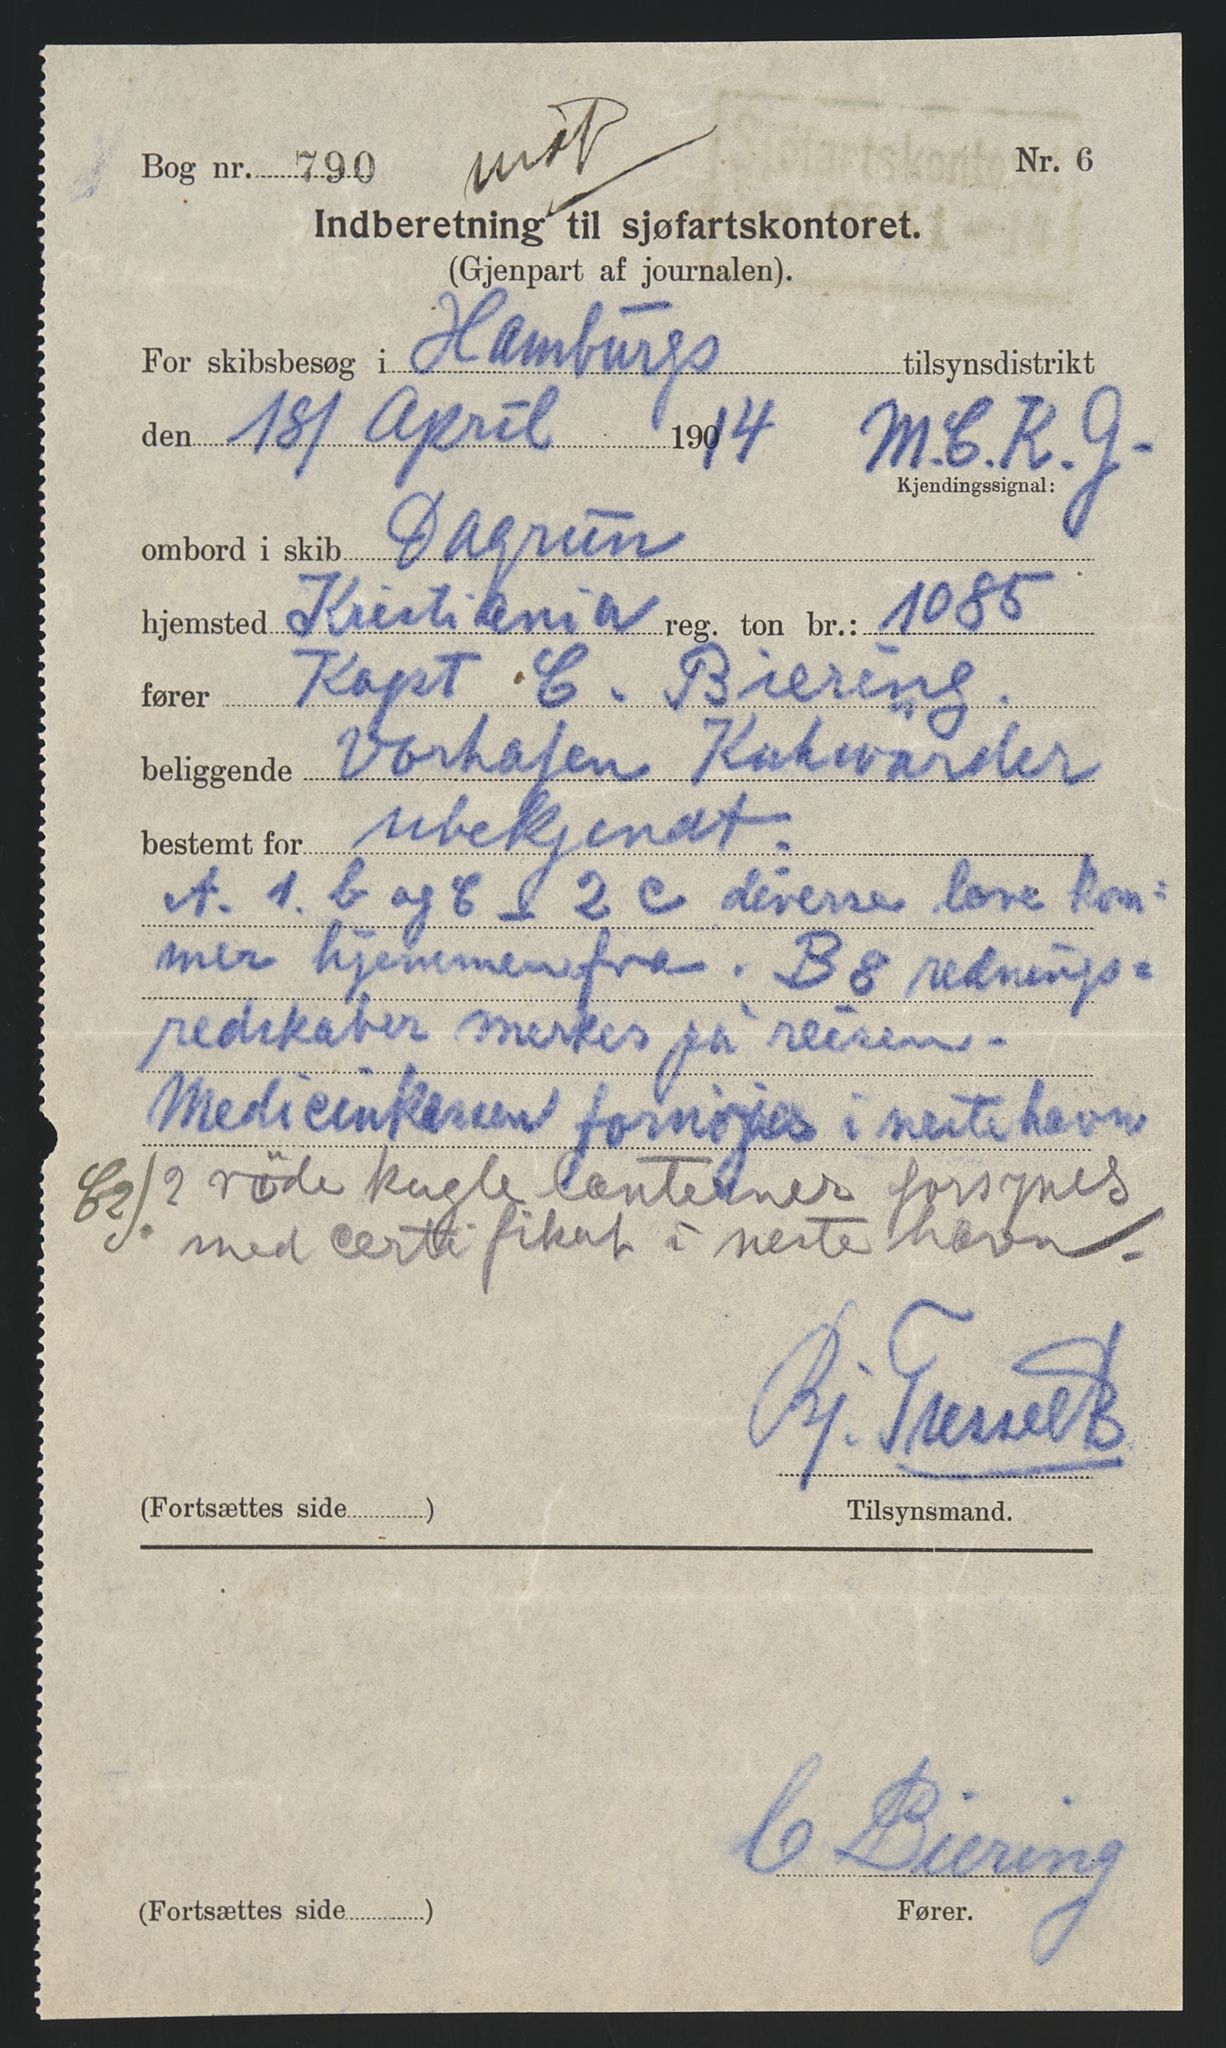 Bog nr. 790
Nr. 6
Indberetning til sjøfartskontoret.
(Gjenpart af journalen).
For skibsbesøg i Hamburgs tilsynsdistrikt
den 18/ April 1914 M.C.K.G.
Kjendingssignal:
ombord i skib Dagrun
hjemsted Kristiania reg. ton br.: 1085
fører Kapt C. Biering.
beliggende Vorhafen Kuhwärder
bestemt for ubekjendt.
A. 1. b og c 2 c diverse love kom=
mer hjemmenfra. B 8 rednings=
redskaber merkes på reisen.
Medicinkassen fornøjes i neste havn
C2). 2 røde kugle lanterner forsynes
med certifikat i neste havn.
(Fortsættes side )
Tilsynsmand.
C Biering
(Fortsættes side )
Fører.